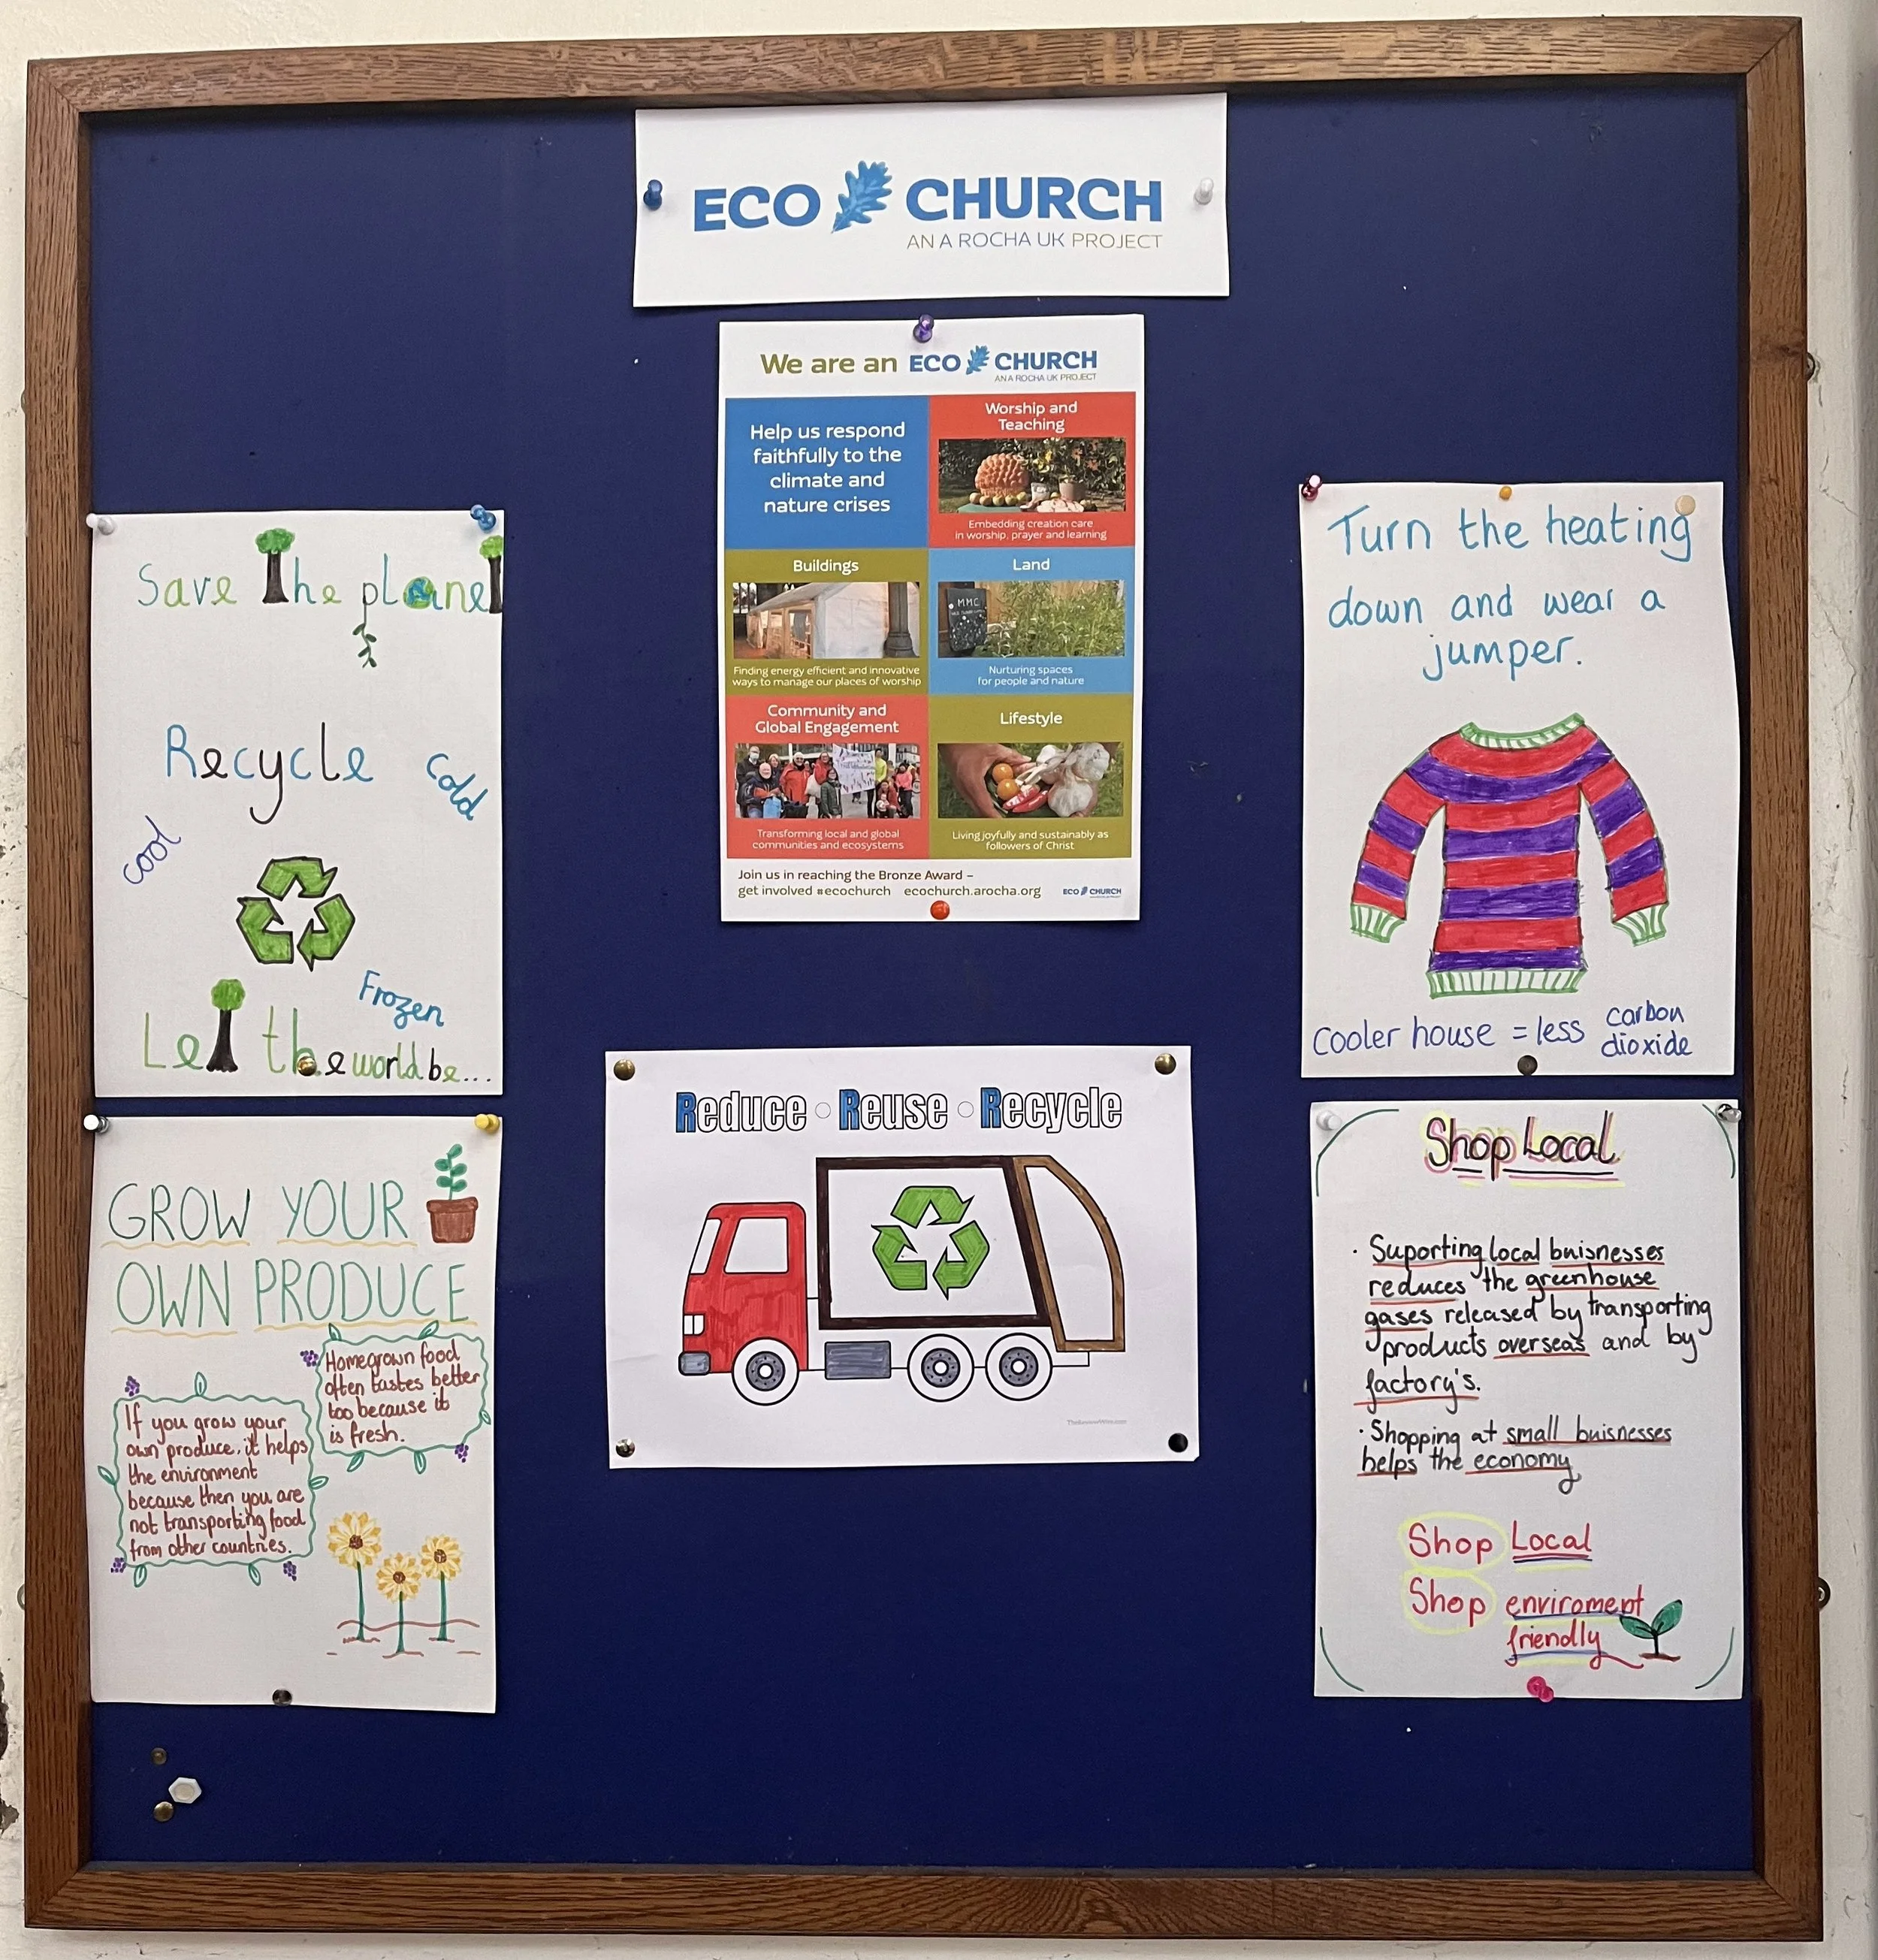 ECO CHURCH
AN A ROCHA UK PROJECT
We are an ECO CHURCH
AN A ROCHA UK PROJECT
Help us respond
faithfully to the
climate and
nature crises
Worship and
Teaching
Embedding creation care
in worship, prayer and learning
Buildings
Finding energy efficient and innovative
ways to manage our places of worship
Land
MMC
Nurturing spaces
for people and nature
Community and
Global Engagement
Transforming local and global
communities and ecosystems
Lifestyle
Living joyfully and sustainably as
followers of Christ
Join us in reaching the Bronze Award –
get involved #ecochurch ecochurch.arocha.org
ECO CHURCH
Save The planeT
Recycle
Cold
cool
Frozen
LeT the world be...
Turn the heating
down and wear a
jumper.
cooler house = less carbon
dioxide
GROW YOUR
OWN PRODUCE
Homegrown food
often tastes better
too because it
is fresh.
If you grow your
own produce, it helps
the environment
because then you are
not transporting food
from other countries.
Reduce ○ Reuse ○ Recycle
TheReviewWire.com
Shop Local
· Suporting local buisnesses
reduces the greenhouse
gases released by transporting
products overseas and by
factory's.
· Shopping at small buisnesses
helps the economy
Shop Local
Shop enviroment
friendly